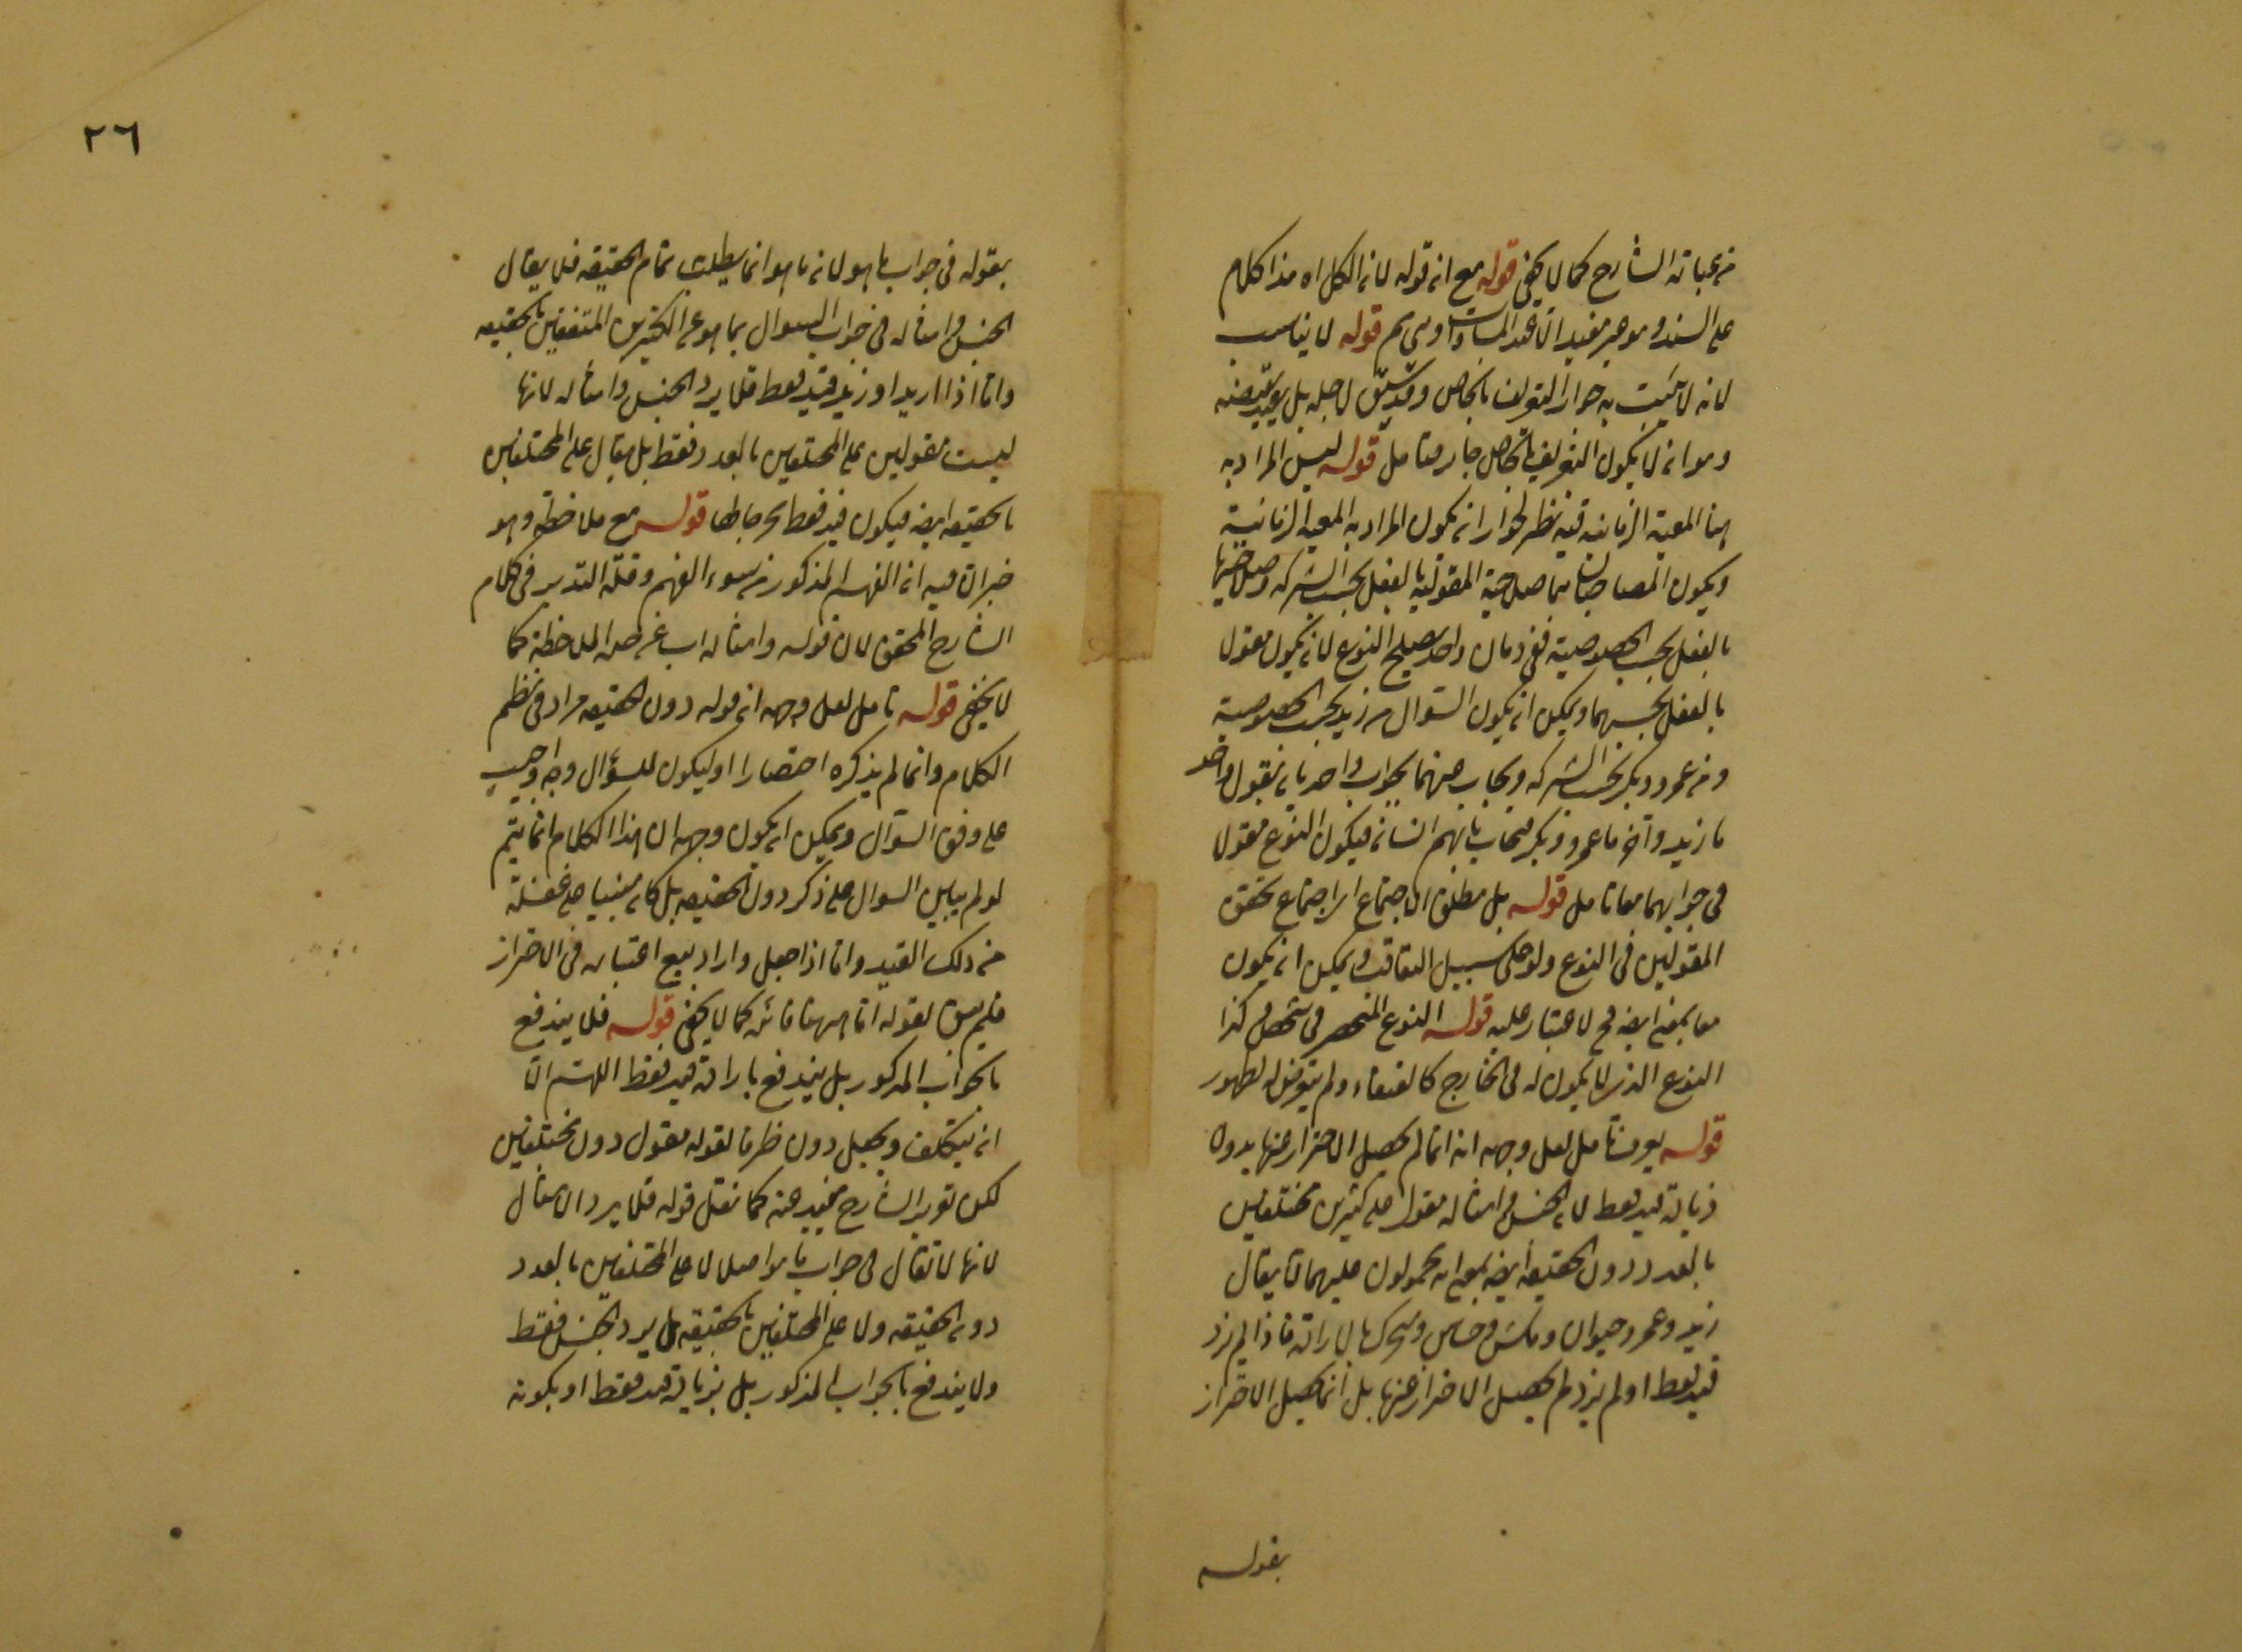 من عبارته الشارح كما لا يخفى قوله مع ان قوله لان الكل اه هذا كلام
على السند وهو غير مفيد الا عند المساوات وهى ثم قوله لا يناسب
لانه لا يثبت به جواز التعريف بالخاص وقد سيق لاجله بل يؤيد نقيضه
وهو ان لا يكون التعريف بالخاص جائز فتأمل قوله ليس المراد به
هنا المعية الزمانية فيه نظر لجواز ان يكون المراد به المعية الزمانية
ويكون المصاحبان هما صلاحية المقولية بالفعل بحسب الشركة وصلاحيتها
بالفعل بحسب الخصوصية ففى زمان واحد يصلح النوع لان يكون مقولا
بالفعل بحسبهما ويمكن ان يكون السؤال من زيد بحسب الخصوصية
ومن عمرو وبكر بحسب الشركة ويجاب عنهما بجواب واحد بان يقول واحد
ما زيد وآخر ما عمرو وبكر فيجاب بانهم انسان فيكون النوع مقولا
فى جوابهما معا تأمل قوله بل مطلق الاجتماع اى اجتماع تحقق
المقولين فى النوع ولو على سبيل التعاقب ويمكن ان يكون
معا بمعنى ايضا فح لا غبار عليه قوله النوع المنحصر فى شخص وكذا
النوع الذى لا يكون له فى الخارج كالعنقاء ولم يتعرض له لظهوره
قوله تأمل لعل وجهه انه انما لم يحصل الاحتراز عنها بدون
زيادة قيد فقط لان الجنس وامثاله مقول على كثيرين مختلفين
بالعدد دون الحقيقة ايضا بمعنى انه محمولون عليهما كما يقال
زيد وعمرو حيوان وماش وحساس ومتحرك بالارادة فاذا لم يزد
قيد فقط او لم يرد لم يحصل الاحتراز عنها بل انما يحصل الاحتراز
بقوله
٢٦
بقوله فى جواب ما هو لان ما هو انما يطلب تمام الحقيقة فلا يقال
الجنس وامثاله فى جواب السؤال بما هو عن الكثيرين المتفقين بالحقيقة
واما اذا اريد او زيد قيد فقط فلا يرد الجنس وامثاله لانها
ليست مقولين على المختلفين بالعدد فقط بل يقال على المختلفين
بالحقيقة ايضا فيكون قيد فقط مخرجا لها قوله مع ملاحظته وهو
خبر ان فيه ان الفهم المذكور من سوء الفهم وقلة التدبر فى كلام
الشارح المحقق لان قوله وامثاله اب عن هذه الملاحظة كما
لا يخفى قوله تأمل لعل وجهه ان قوله دون الحقيقة مراد فى نظم
الكلام وانما لم يذكره اختصارا او ليكون للسؤال وجه واجيب
على وفق السؤال ويمكن ان يكون وجهه ان هذا الكلام انما يتم
لو لم يبين السؤال على ذكر دون الحقيقة بل كان مبنيا على غفلة
من ذلك القيد واما اذا جعل واراد بيع اعتباره فى الاحتراز
فلم يبق لقوله اما ههنا فائدة كما لا يخفى قوله فلا يندفع
بالجواب المذكور بل يندفع بارادة قيد فقط اللهم الا
ان يتكلف ويجعل دون ظرفا لقوله مقول دون مختلفين
لكن تقرير الشارح بعيد عنه كما نقل قوله فلا يرد الامثال
لانها لا تقال فى جواب ما هو اصلا لا على المختلفين بالعدد
دون الحقيقة ولا على المختلفين بالحقيقة بل يرد الجنس فقط
ولا يندفع بالجواب المذكور بل بزيادة قيد فقط او بكونه